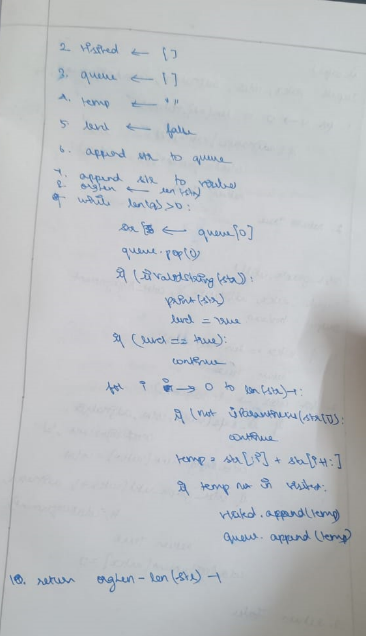 2. visited ← [ ]
3. queue ← [ ]
4. temp ← " "
5. level ← false
6. append str to queue
7. append str to visited
8. orglen ← len(str)
9. while len(q)>0:
str ← queue[0]
queue.pop(0)
if (isvalidstring(str)):
print(str)
level = true
if (level == true):
continue
for i → 0 to len(str)-1:
if (not isParenthesis(str[i]):
continue
temp = str[:i] + str[i+1:]
if temp not in visited:
visited.append(temp)
queue.append(temp)
10. return orglen - len(str) -1